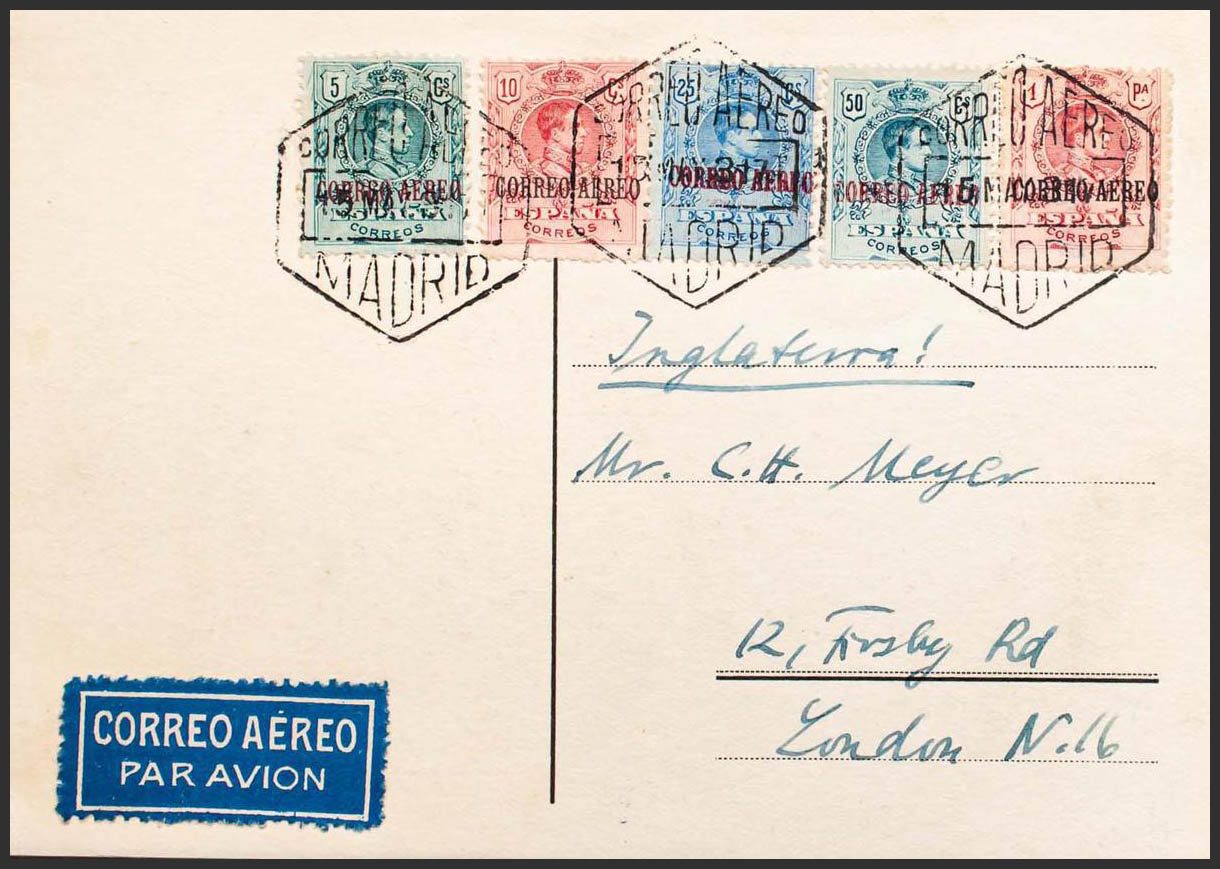 5 Cs
CORREO AEREO
ESPAÑA
CORREOS
10 Cs
CORREO AEREO
ESPAÑA
CORREOS
25 Cs
CORREO AEREO
ESPAÑA
CORREOS
50 Cs
CORREO AEREO
ESPAÑA
CORREOS
1 PA
CORREO AEREO
ESPAÑA
CORREOS
CORREO AEREO
MADRID
CORREO AEREO
MADRID
CORREO AEREO
MADRID
Inglaterra!
Mr. C.H. Meyer
12, Rd
London N.16
CORREO AÉREO
PAR AVION